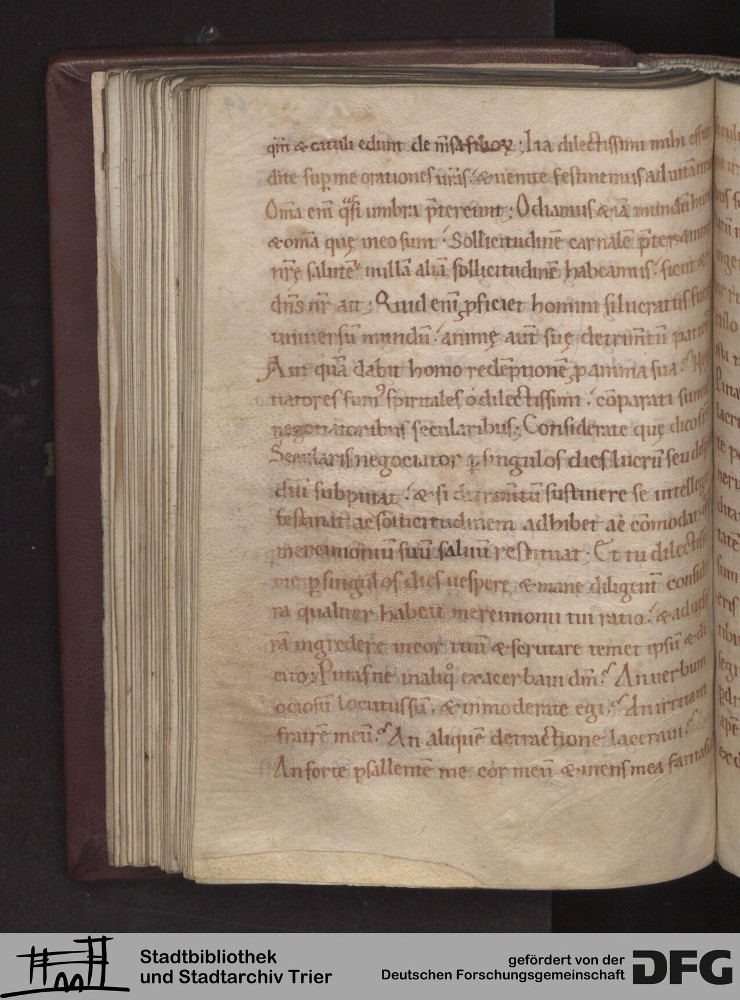 qm̄ & catuli edunt de
dilectissimi mihi
dite sup me orationes uras: & uenite festinemus ad uitā
Om̄a enī q̄si umbra p̄tereunt: Odiamus & iā mundū
& om̄a quę in eo sunt: Sollicitudinē carnalē
nr̄ę salutē nullā aliā sollicitudinē habeamus: sicut &
dn̄s nr̄ ait: Quid enī ꝓficiet homini si lucratus
uniuersū mundū: animę aūt suę detrimtū
Aut quā dabit homo redēptionē ꝓ anima sua:
tiatores sumꝰ spiritales o dilectissimi: cōparati
negotiatoribus secularibus: Considerate quę dico
Secularis negociator ꝑ singulos dies lucrū seu
diū subputat: & si sustinere se intelleg
festinat ac sollicitudinem adhibet ac cōmodat
mercimoniū suū saluū restituat: Et tu dilectiss
me ꝑ singulos dies uespere & mane diligent consid
ra qualiter habeat mercimonii tui ratio: & ad
rā ingredere in cor tuū & scrutare temet ipsū & di
cito: Putasne in aliqͦ exacerbaui dm̄: An uerbum
ociosū locutus sū: & inmoderate egi: An irritaui
fratrē meū: An aliquē detractione laceraui:
An forte psallente me cor meū & mens mea
Stadtbibliothek
und Stadtarchiv Trier
gefördert von der
Deutschen Forschungsgemeinschaft
DFG